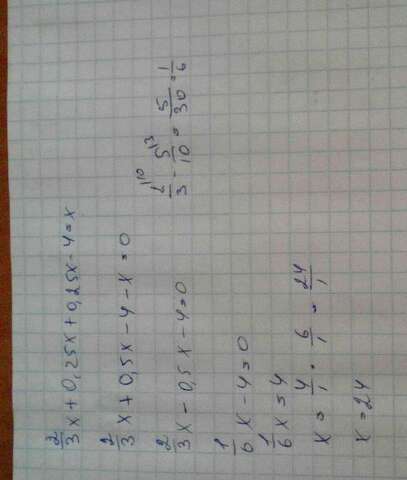 2/3 x + 0,25x + 0,25x - 4 = x
2/3 x + 0,5x - 4 - x = 0
2/3 x - 0,5x - 4 = 0
2\10/3 - 5\3/10 = 5/30 = 1/6
1/6 x - 4 = 0
1/6 x = 4
x = 4/1 · 6/1 = 24/1
x = 24